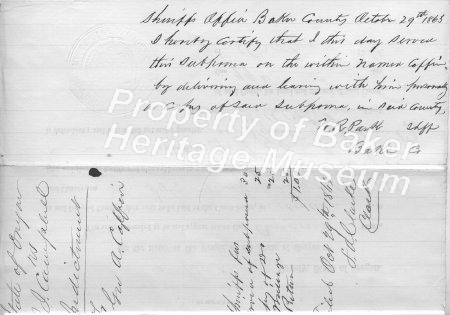 Sheriffs Office Baker County October 29th 1863
I hereby certify that I this day served
this Subpoena on the within named Coffin
by delivering and leaving with him personaly
a Copy of said Subpoena, in said County,
Park Shff
Baker Co
Property of Baker
Heritage Museum
State of Oregon
vs
Campbell
Indictment
Geo A. Coffin
Sheriffs fees
service of subpoena 30
Copy of Do
Mileage
Return
Filed Oct 29th 1863
Clerk